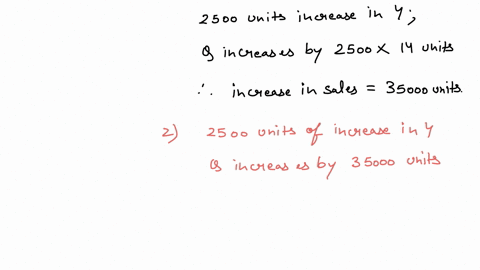 2500 units increase in Y;
Q increases by 2500 X 14 units
∴ increase in sales = 35000 units.
2) 2500 units of increase in Y
Q increases by 35000 units